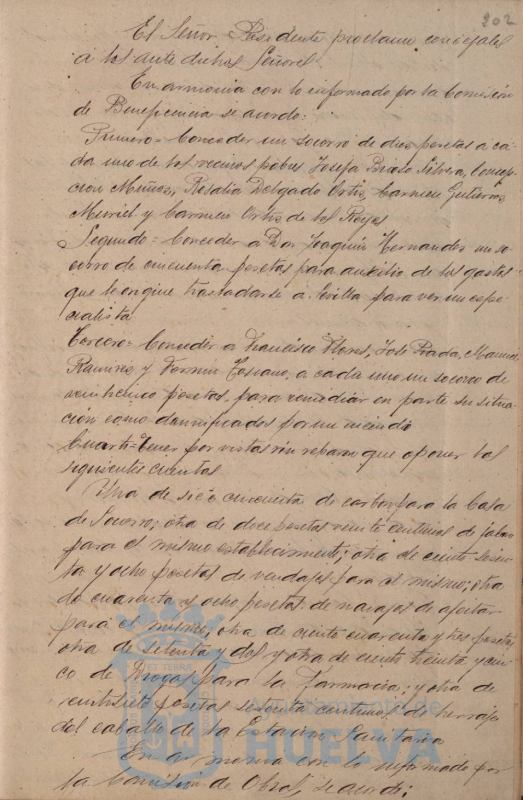 202
El Señor Presidente proclama concejales
á los ante dichos Señores.
En armonia con lo informado por la Comisión
de Beneficencia se acordo:
Primero= Conceder un socorro de dies pesetas a ca-
da uno de los vecinos pobres Josefa Bravo Silvera, Concep-
cion Muñoz, Rosalia Delgado Ortis, Carmen Gutierres
Muriel y Carmen Ortis de los Reyes
Segundo= Conceder a Don Joaquin Hernandes un so-
corro de cincuenta pesetas para auxilio de los gastos
que le origine trasladarse a Sevilla para ver un espe-
cialista
Tercero= Conceder a Francisco Flores, José Prada, Manuel
Ramires y Fermin Toscano, a cada uno un socorro de
veinticinco pesetas, para remediar en parte su situa-
ción como damnificados por un incendio
Cuarto= Tener por vistas sin reparo que oponer las
siguientes cuentas
Una de seis cincuenta de carbon para la Casa
de Socorro; otra de doce pesetas veinte centimos de jabon
para el mismo establecimiento; otra de ciento sesen-
ta y ocho pesetas de vendajes para el mismo; otra
de cuarenta y ocho pesetas de navajas de afeitar
para el mismo; otra de ciento cuarenta y tres pesetas,
otra de setenta y dos y otra de ciento treinta y cin-
co de Drogas para la farmacia; y otra de
veintisiete pesetas sesenta centimos de herraje
del caballo de la Estación Sanitaria
En armonia con lo informado por
la Comision de Obras, se acordo:
ET TERRÆ
Ayuntamiento de
HUELVA